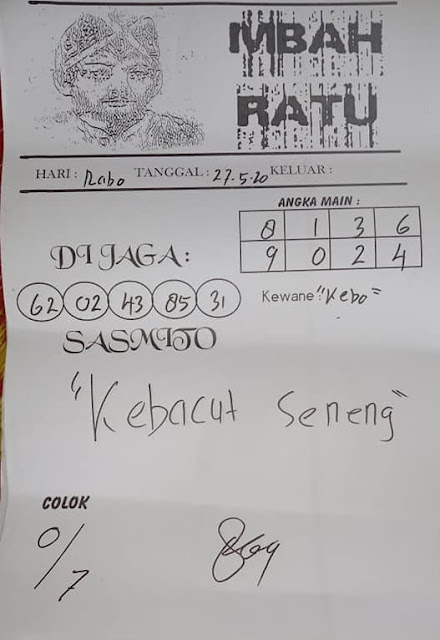 MBAH
RATU
HARI : Rabo TANGGAL : 27.5.20 KELUAR :
ANGKA MAIN :
8 1 3 6
9 0 2 4
DI JAGA :
62 02 43 85 31
Kewane : "Kebo"
SASMITO
"Kebacut Seneng"
COLOK
0/7